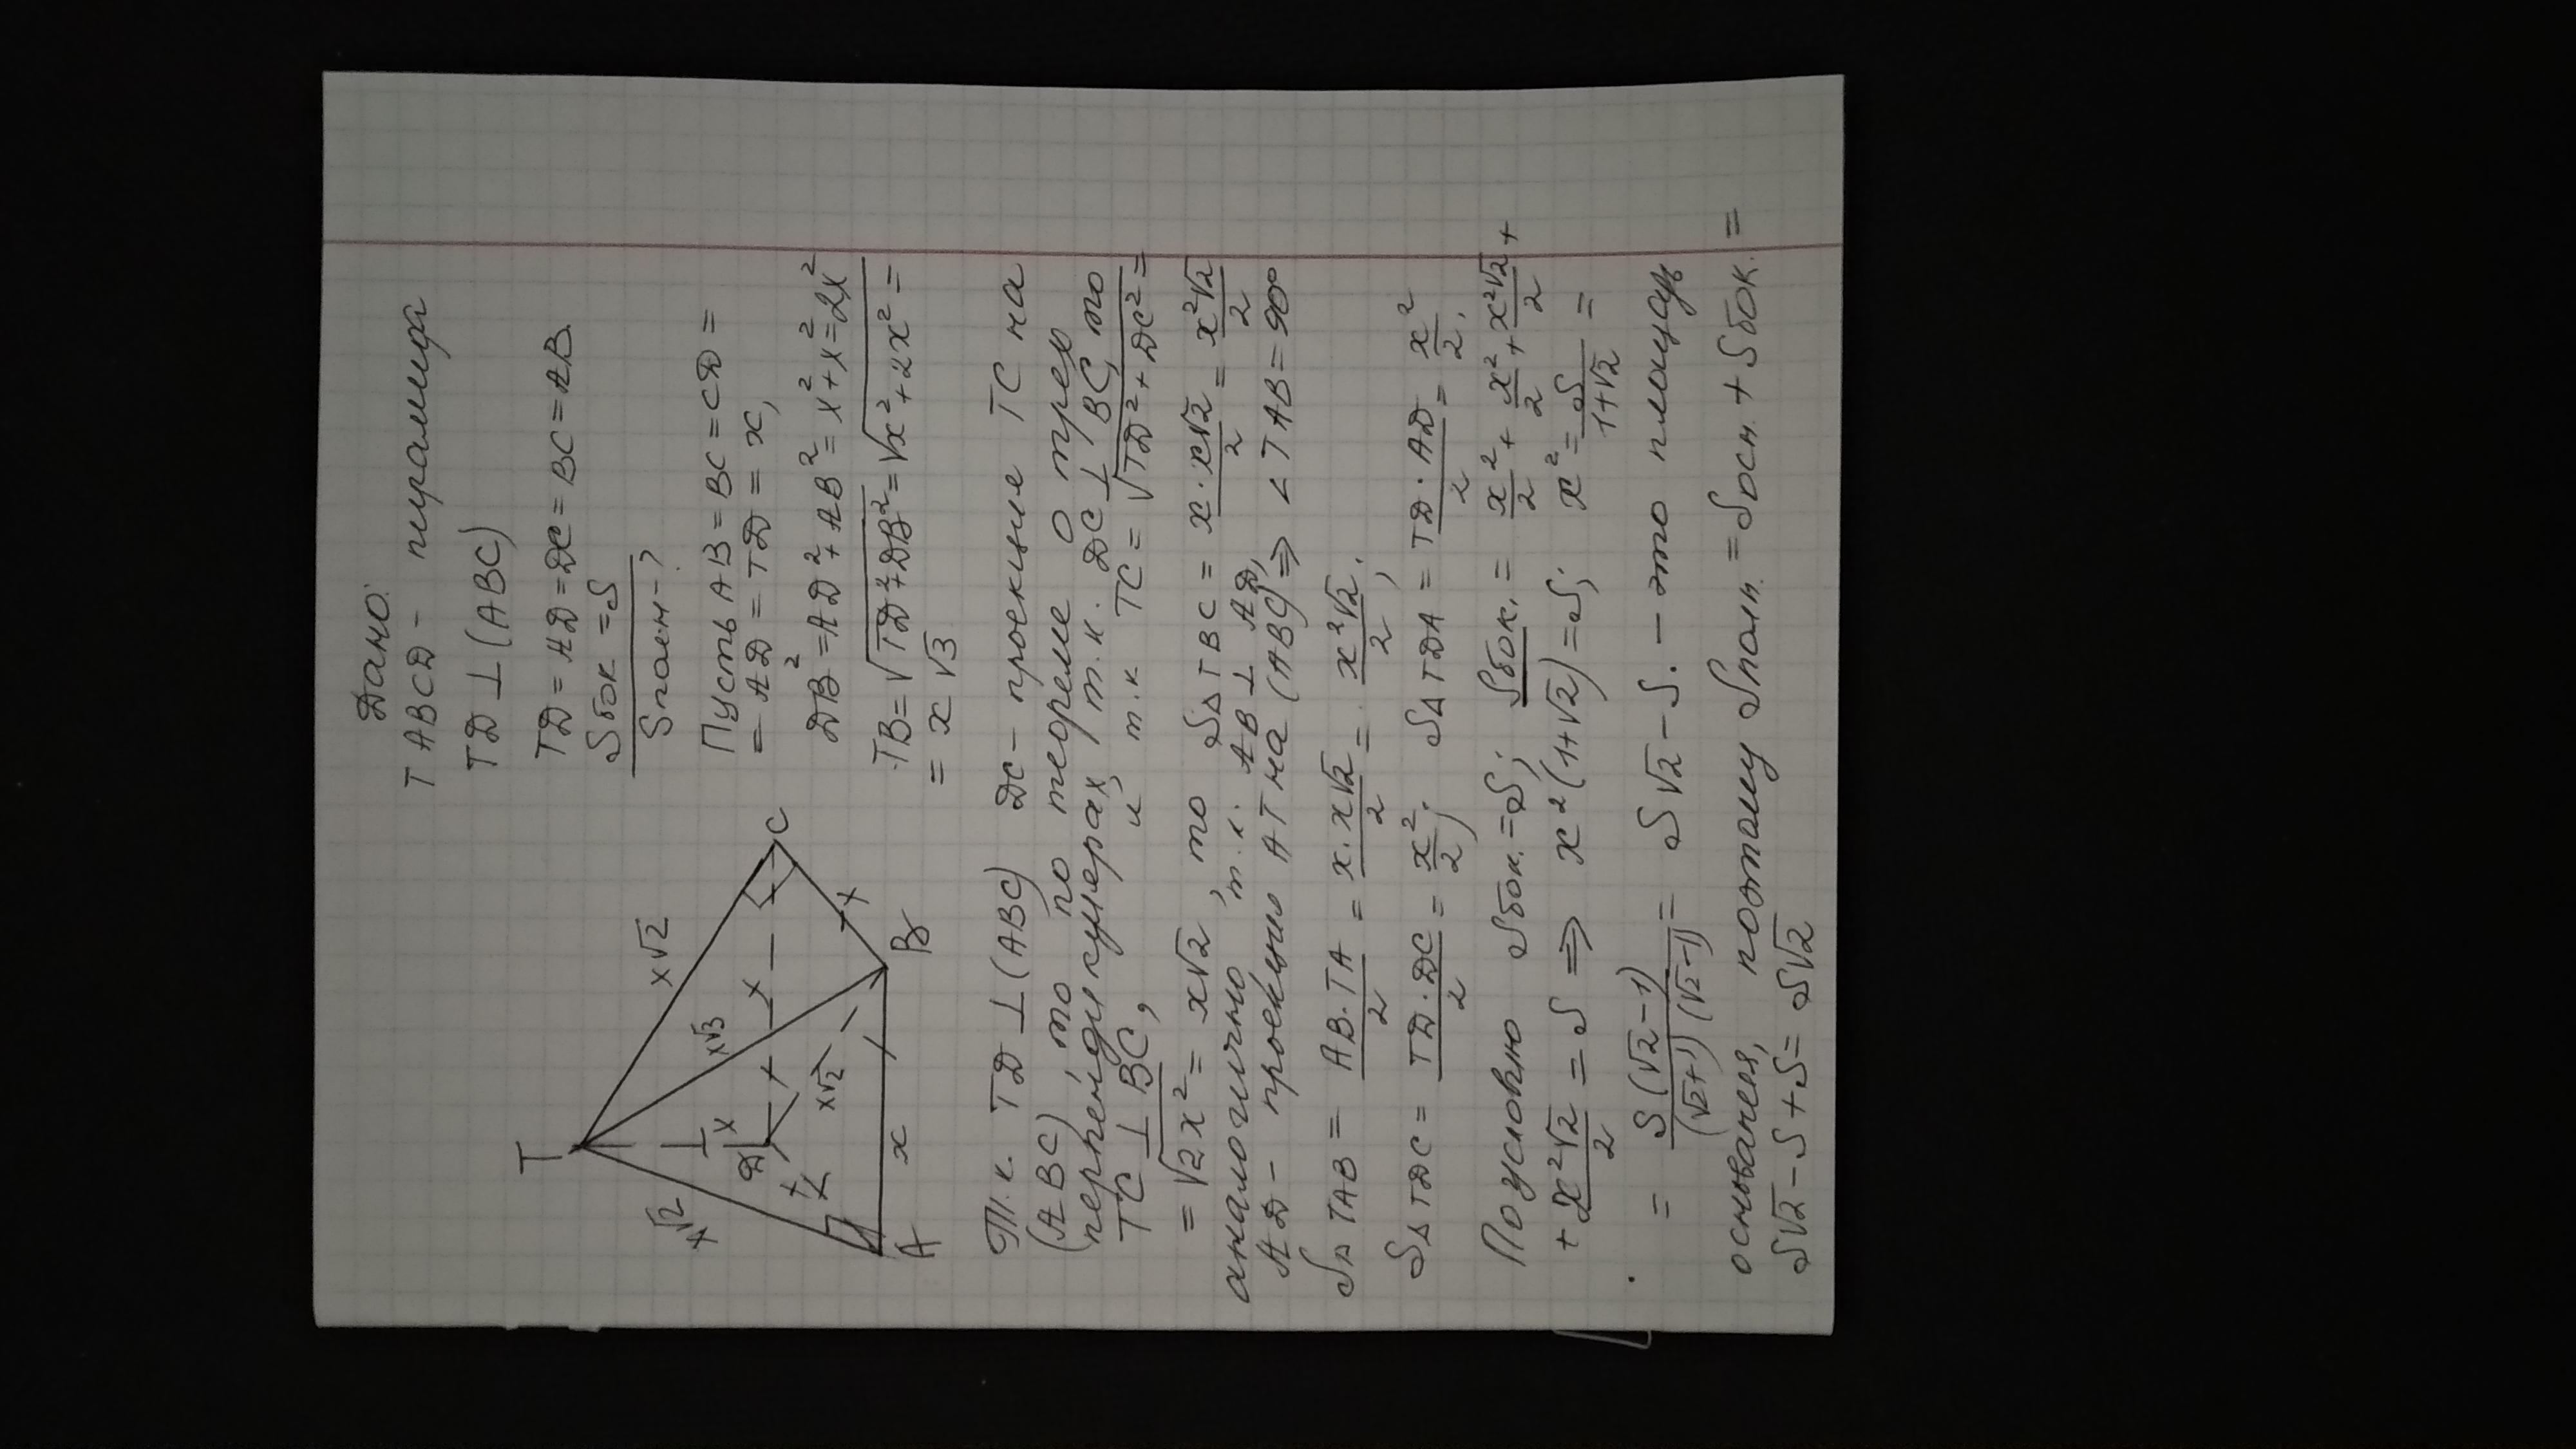 Дано:
TABCD - пирамида
TD ⊥ (ABC)
TD = AD = DC = BC = AB
Sбок = S
Sполн - ?
Пусть AB = BC = CD =
= AD = TD = x,
DB² = AD² + AB² = x² + x² = 2x²
TB = √(TD² + DB²) = √(x² + 2x²) =
= x√3
T
x√2
x√3
x√2
x
D
x
x
x√2
C
x
A
x
B
Т.к. TD ⊥ (ABC) DC - проекция TC на
(ABC), то по теореме о трех
перпендикулерах, т.к. DC ⊥ BC, то
TC ⊥ BC, и т.к TC = √(TD² + DC²) =
= √(2x²) = x√2, то S△TBC = (x · x√2)/2 = x²√2/2
аналогично, т.к. AB ⊥ AD,
AD - проекцию AT на (ABC) ⇒ ∠TAB = 90°
S△TAB = (AB · TA)/2 = (x · x√2)/2 = x²√2/2;
S△TDC = (TD · DC)/2 = x²/2; S△TDA = (TD · AD)/2 = x²/2.
По условию Sбок. = S; Sбок. = x²/2 + x²/2 + x²√2/2 +
+ x²√2/2 = S ⇒ x²(1+√2) = S; x² = S/(1+√2) =
= S(√2-1)/((√2+1)(√2-1)) = S√2 - S. - это площадь
основания, поэтому Sполн. = Sосн. + Sбок. =
S√2 - S + S = S√2